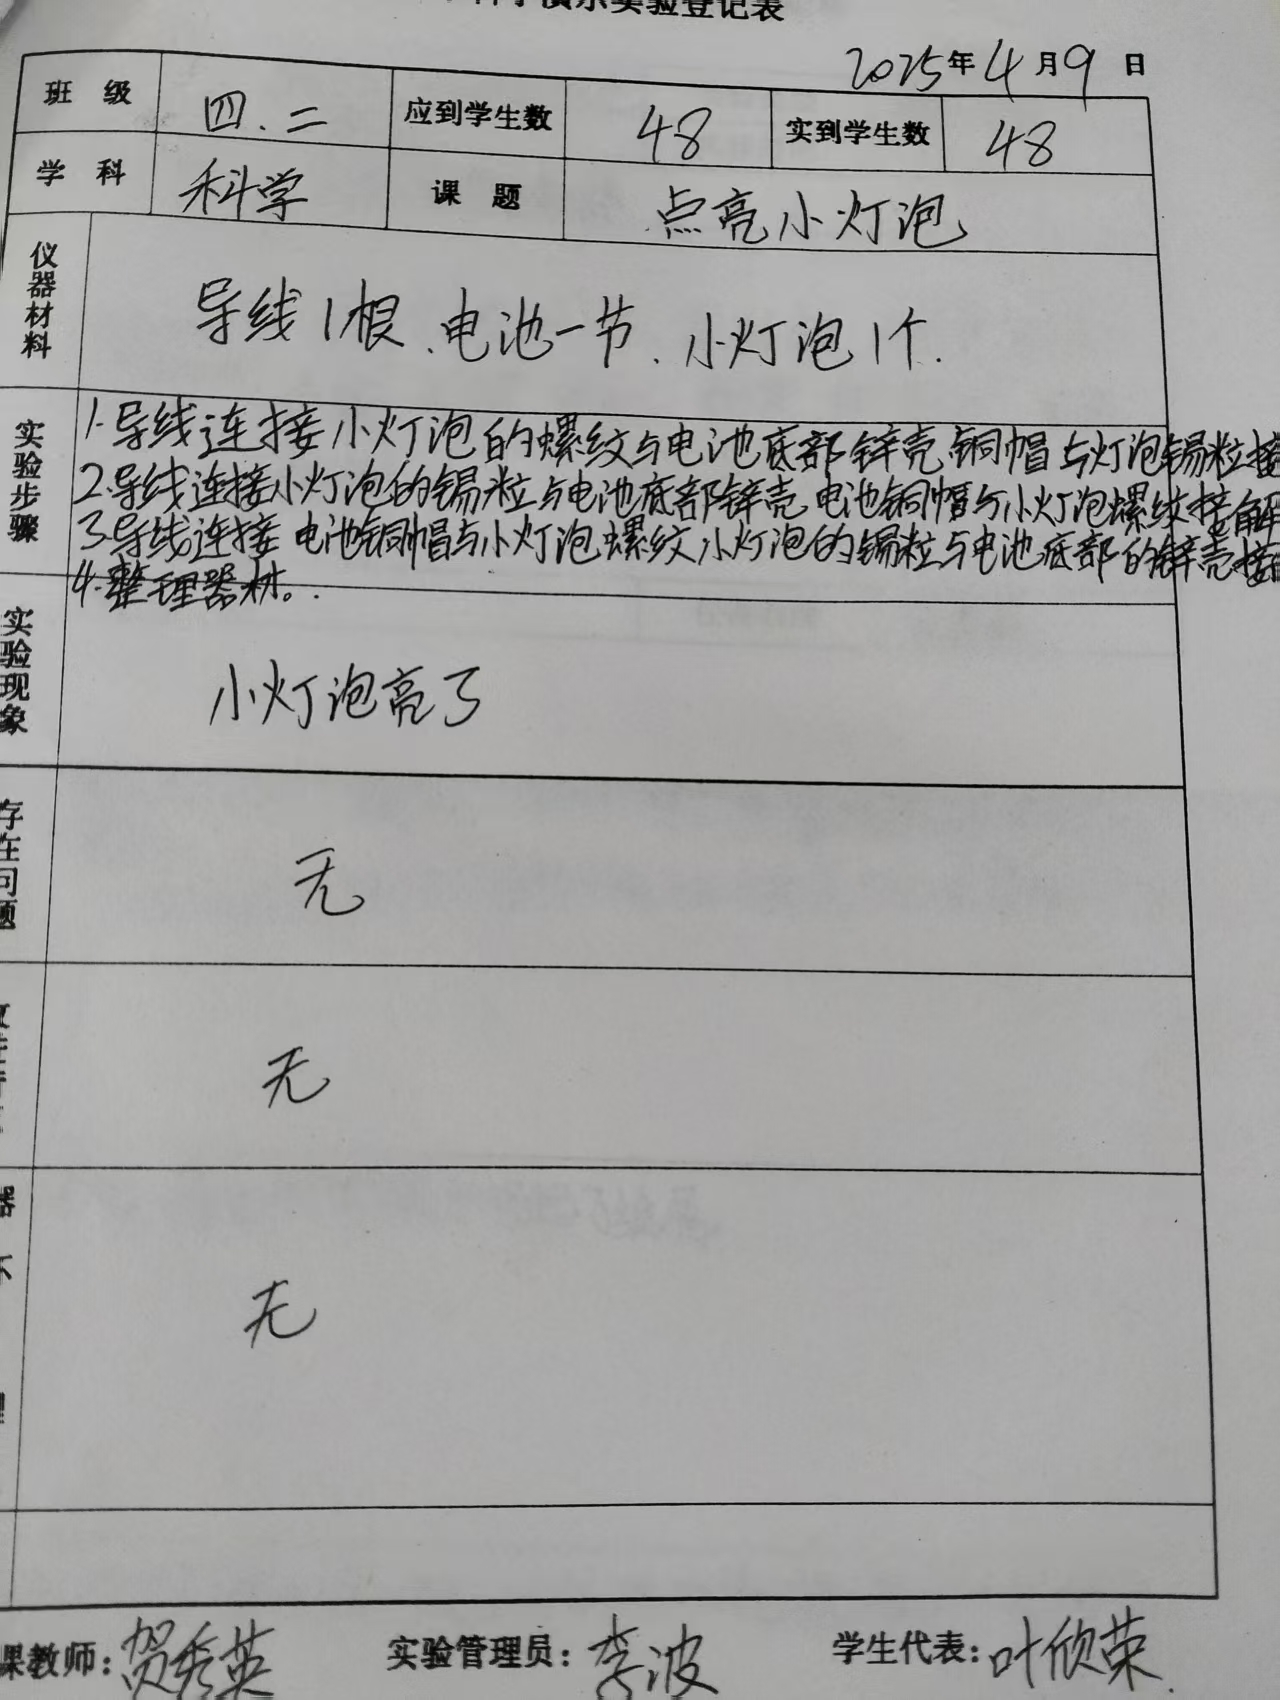 演示实验登记表
2025年4月9日
班 级 四.二 应到学生数 48 实到学生数 48
学 科 科学 课 题 点亮小灯泡
仪器材料 导线1根、电池一节、小灯泡1个.
实验步骤
1.导线连接小灯泡的螺纹与电池底部锌壳,铜帽与灯泡锡粒接
2.导线连接小灯泡的锡粒与电池底部锌壳 电池铜帽与小灯泡螺纹接触
3.导线连接 电池铜帽与小灯泡螺纹 小灯泡的锡粒与电池底部的锌壳接
4.整理器材。
实验现象 小灯泡亮了
存在问题 无
无
器 无
理
课教师:贺秀英 实验管理员:李波 学生代表:叶欣荣